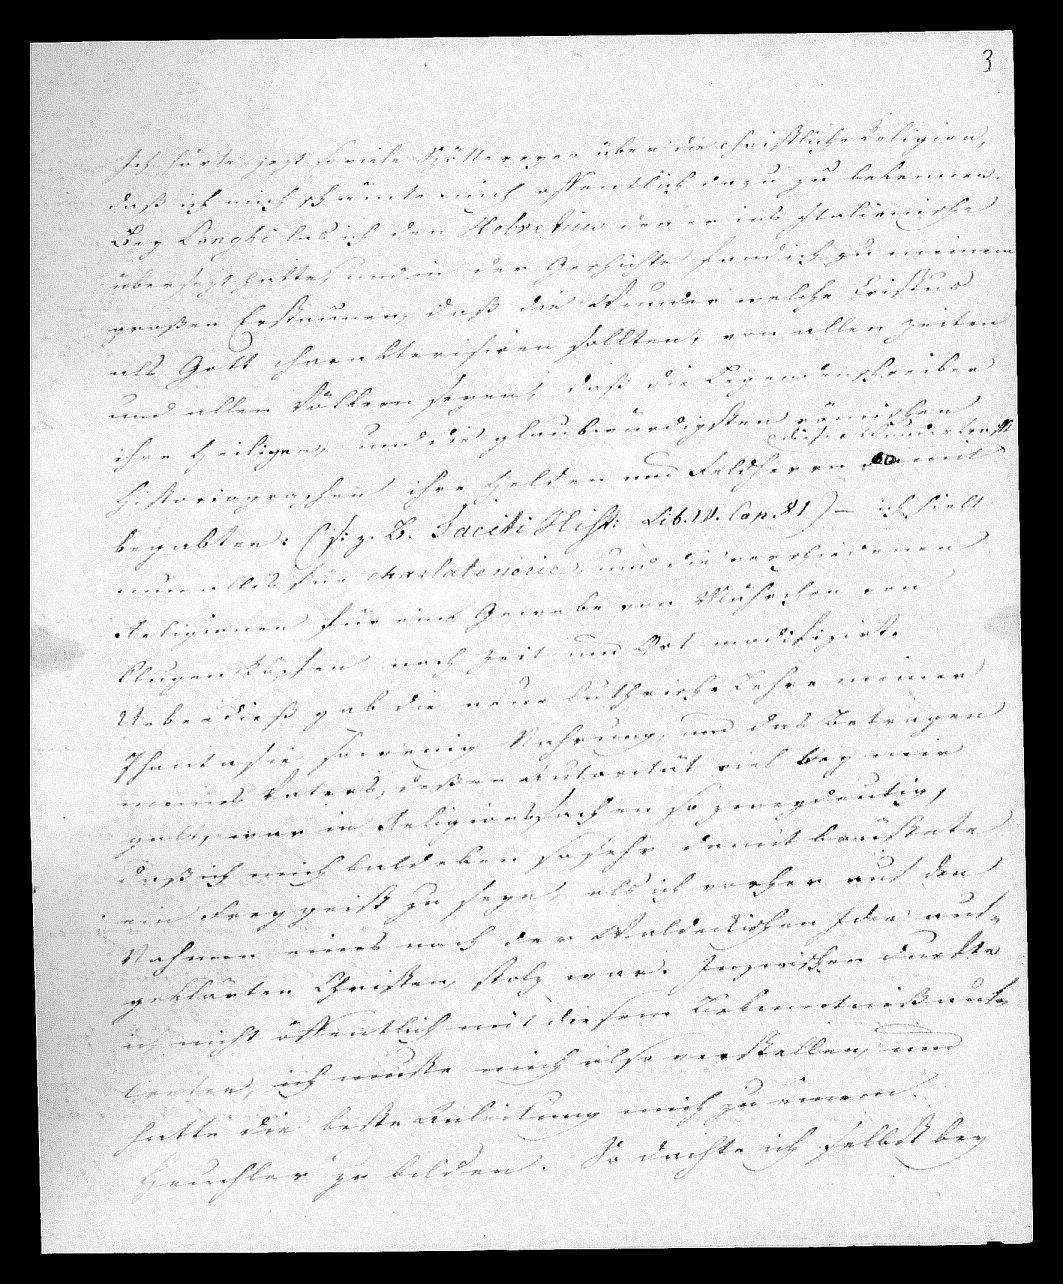 3
Ich hörte jezt so viele Spöttereyen über die christliche Religion,
daß ich mich schämte mich öffentlich dazu zu bekennen.
Bey Longhi las ich den Helvetius den er ins Italienische
übersezt hatte, und in der Geschichte fand ich zu meinem
großen Erstaunen, daß die Wunder welche Cristus
als Gott charakterisiren sollten, von allen Zeiten
und allen Völkern seyen, daß die Legendenschreiber
ihre Heiligen, und die glaubwürdigsten römischen
dieser Wunderkraft
Historiographen ihre Helden und Feldherrn mit
begabten: (s. z. B. Taciti Hist: Lib. IV. Cap. 81) – ich hielt
nun alles für charlatanerie, und die verschiedenen
Religionen für eine Gewebe von Mährchen von
klugen Köpfen nach Zeit und Ort modifizirt.
Ueberdieß gab die neue luthrische Lehre meiner
Phantasie so wenig Nahrung, und das Betragen
meines Vaters, deßen Autorität viel bey mir
galt, war in Religionssachen so zweydeutig,
daß ich mich bald eben so sehr damit brüstete
ein Freygeist zu seyn, als ich vorher auf den
Nahmen eines nach der Waldeckischen Idee auf-
geklärten Christen stolz war. Inzwischen durfte
ich nicht öffentlich mit diesem Bekenntniß auf-
treten, ich mußte mich also verstellen, und
hatte die beste Anleitung mich zu einem
Heuchler zu bilden. So dachte ich selbst bey